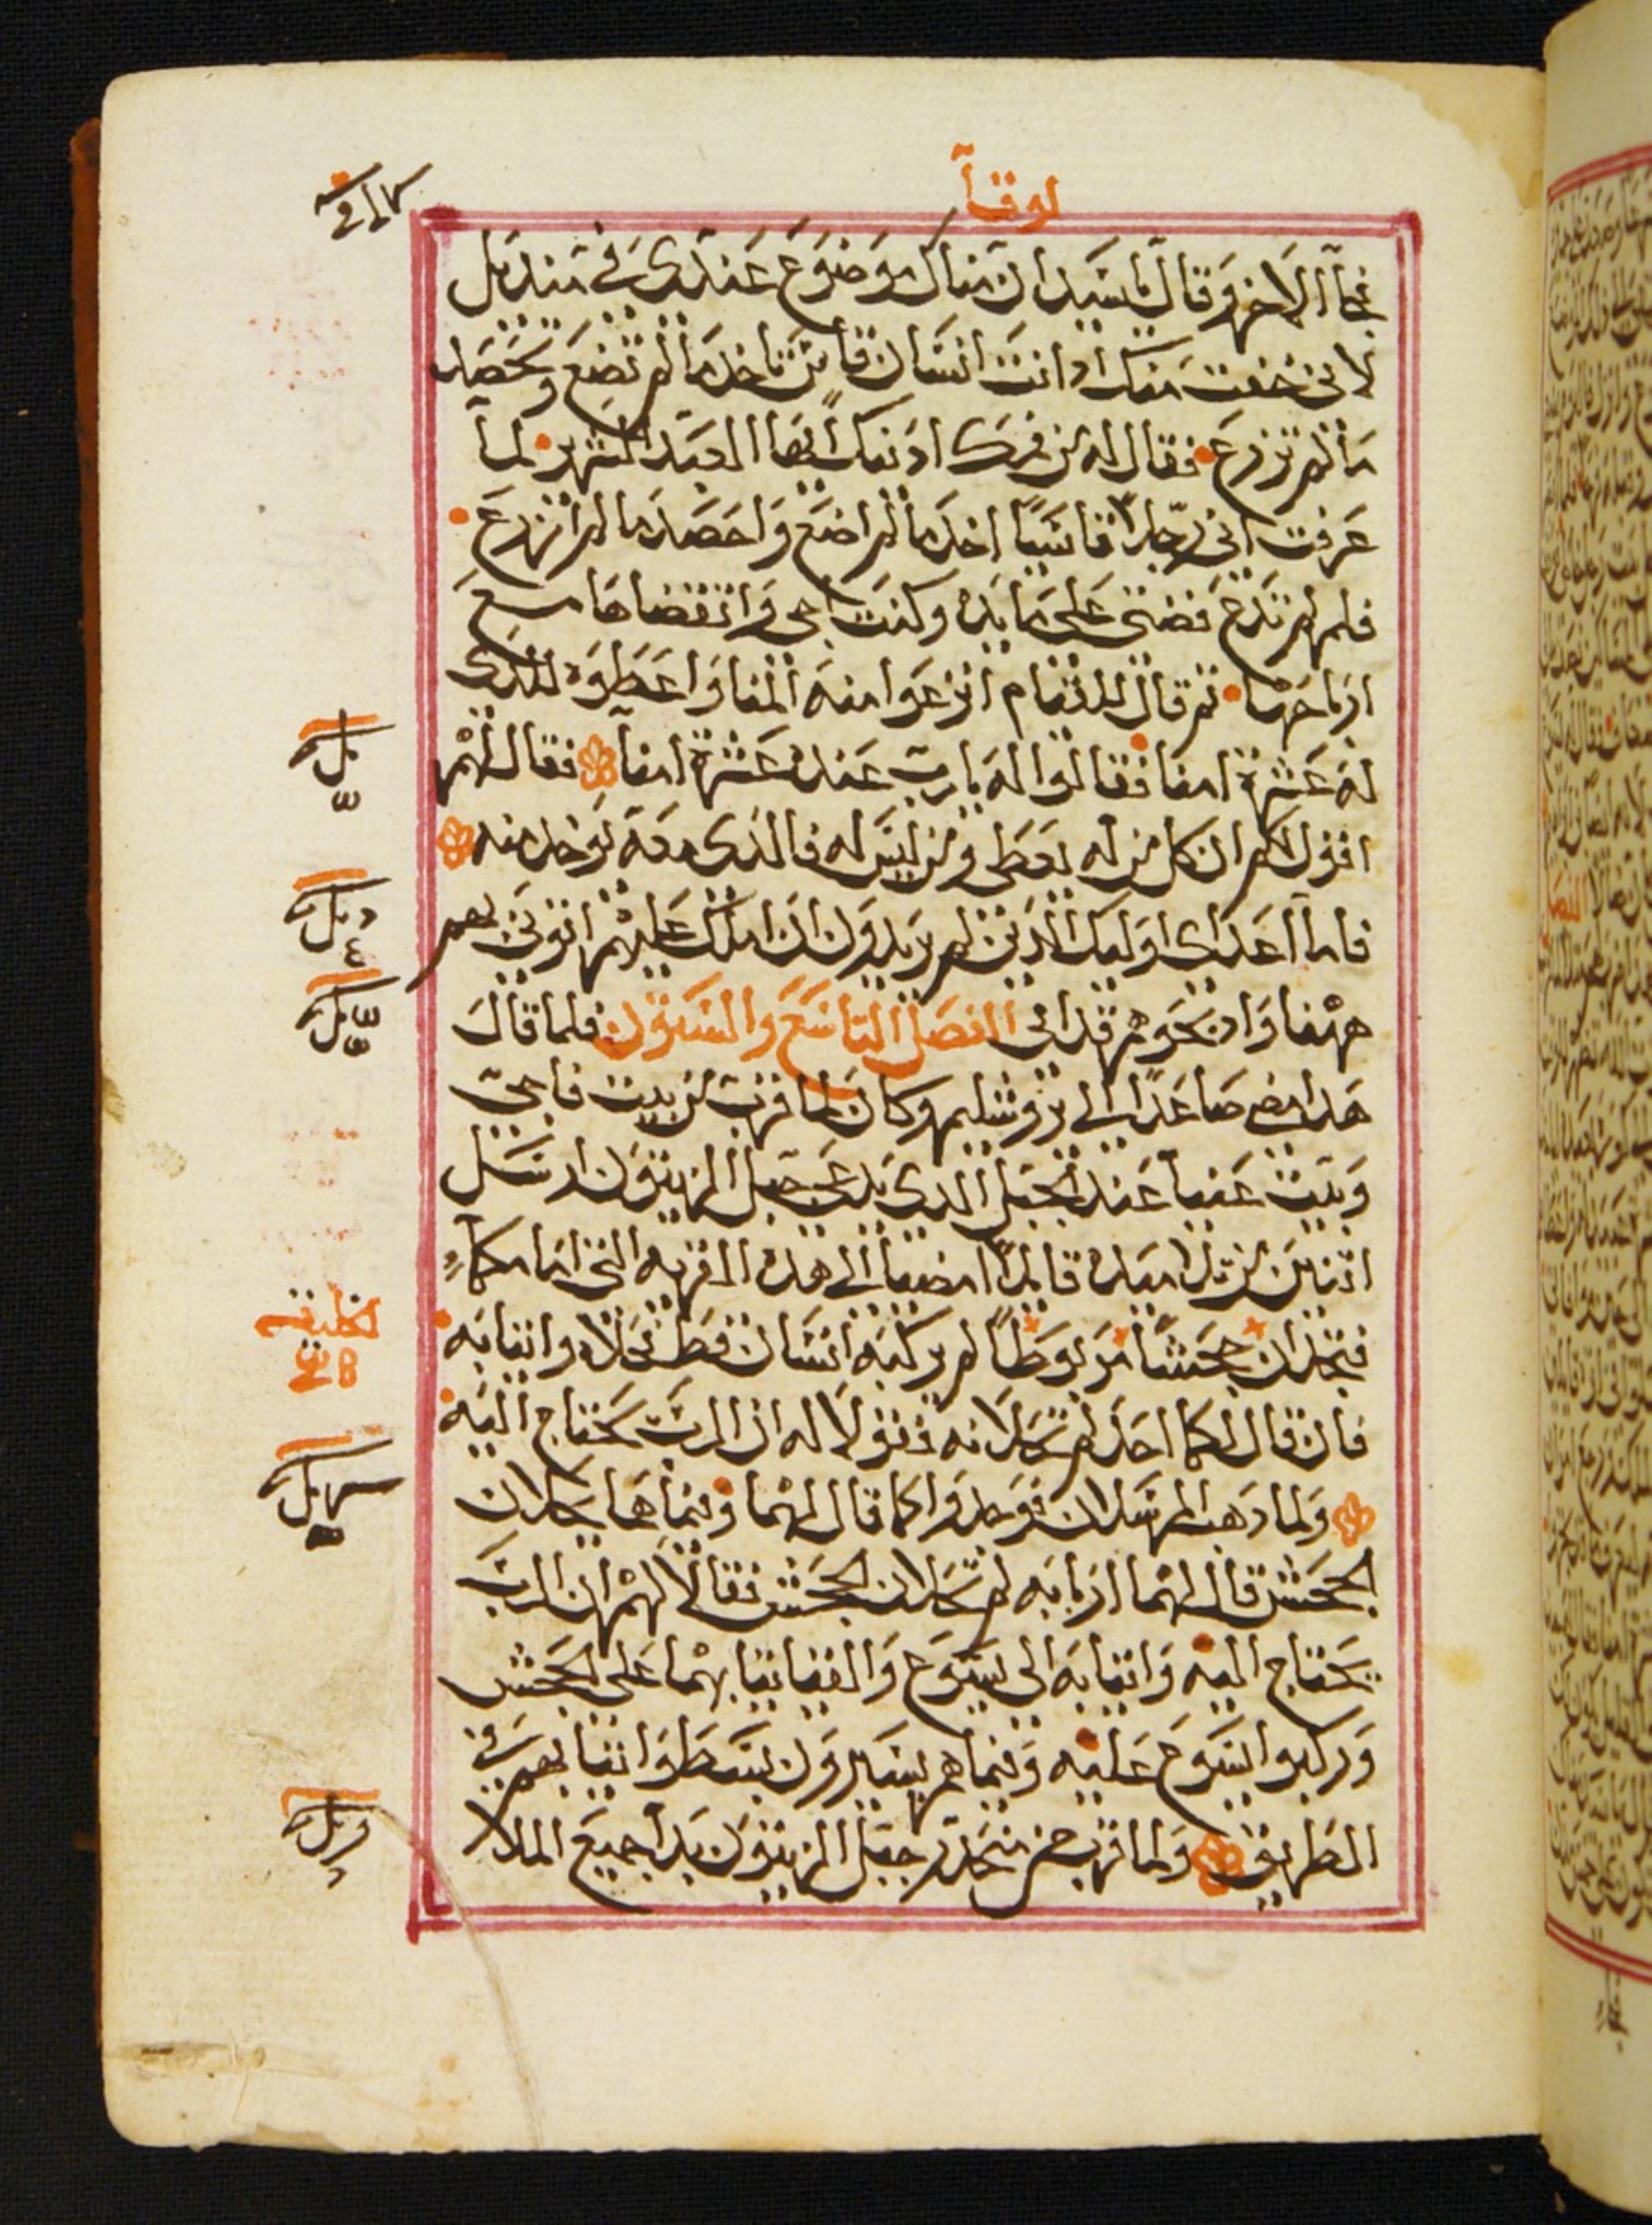 لوقا
فجآ الاخر وقال يا سيد ان مناك موضوع عندي في منديل
لاني خفت منك اد انت انسان قاس تاخد ما لم تضع وتحصد
ما لم تزرع فقال له من فمك ادنيك ايها العبد الشرير لما
عرفت اني رجلا قاسيا اخد ما لم اضع واحصد ما لم ازرع
فلم لم تدع فضتي على مايده وكنت اجي واتقضاها مع
ارباحها ثم قال للقيام انزعوا منه المنا واعطوه للذي
له عشرة امنا فقالوا له يا رب عنده عشرة امنا فقال لهم
اقول لكم ان كل من له يعطى ومن ليس له فالذي معه يوخد منه
فاما اعداي اوليك الذين لم يريدون ان املك عليهم اتوني بهم
ههنا وادبحوهم قدامي الفصل التاسع والستون فلما قال
هدا مضى صاعدا الى يروشليم وكان لما قرب من بيت فاجي
وبيت عنيا عند الجبل الدي يدعى جبل الزيتون ارسل
اتنين من تلاميده قايلا امضيا الى هده القريه التي امامكما
فتجدان جحشا مربوطا لم يركبه انسان قط فحلاه واتيا به
فان قال لكما احد لم تحلانه فقولا له ان الرب يحتاج اليه
ولما دهب المرسلان فوجدوا كما قال لهما وفيما هما يحلان
الجحش قال لهما اربابه لم تحلان الجحش فقالا لهم ان الرب
يحتاج اليه واتيا به الى يسوع والقيا ثيابهما على الجحش
وركبوا يسوع عليه وفيما هم يسيرون بسطوا ثيابهم في
الطريق ولما قرب من منحدر جبل الزيتون بدا جميع الملا